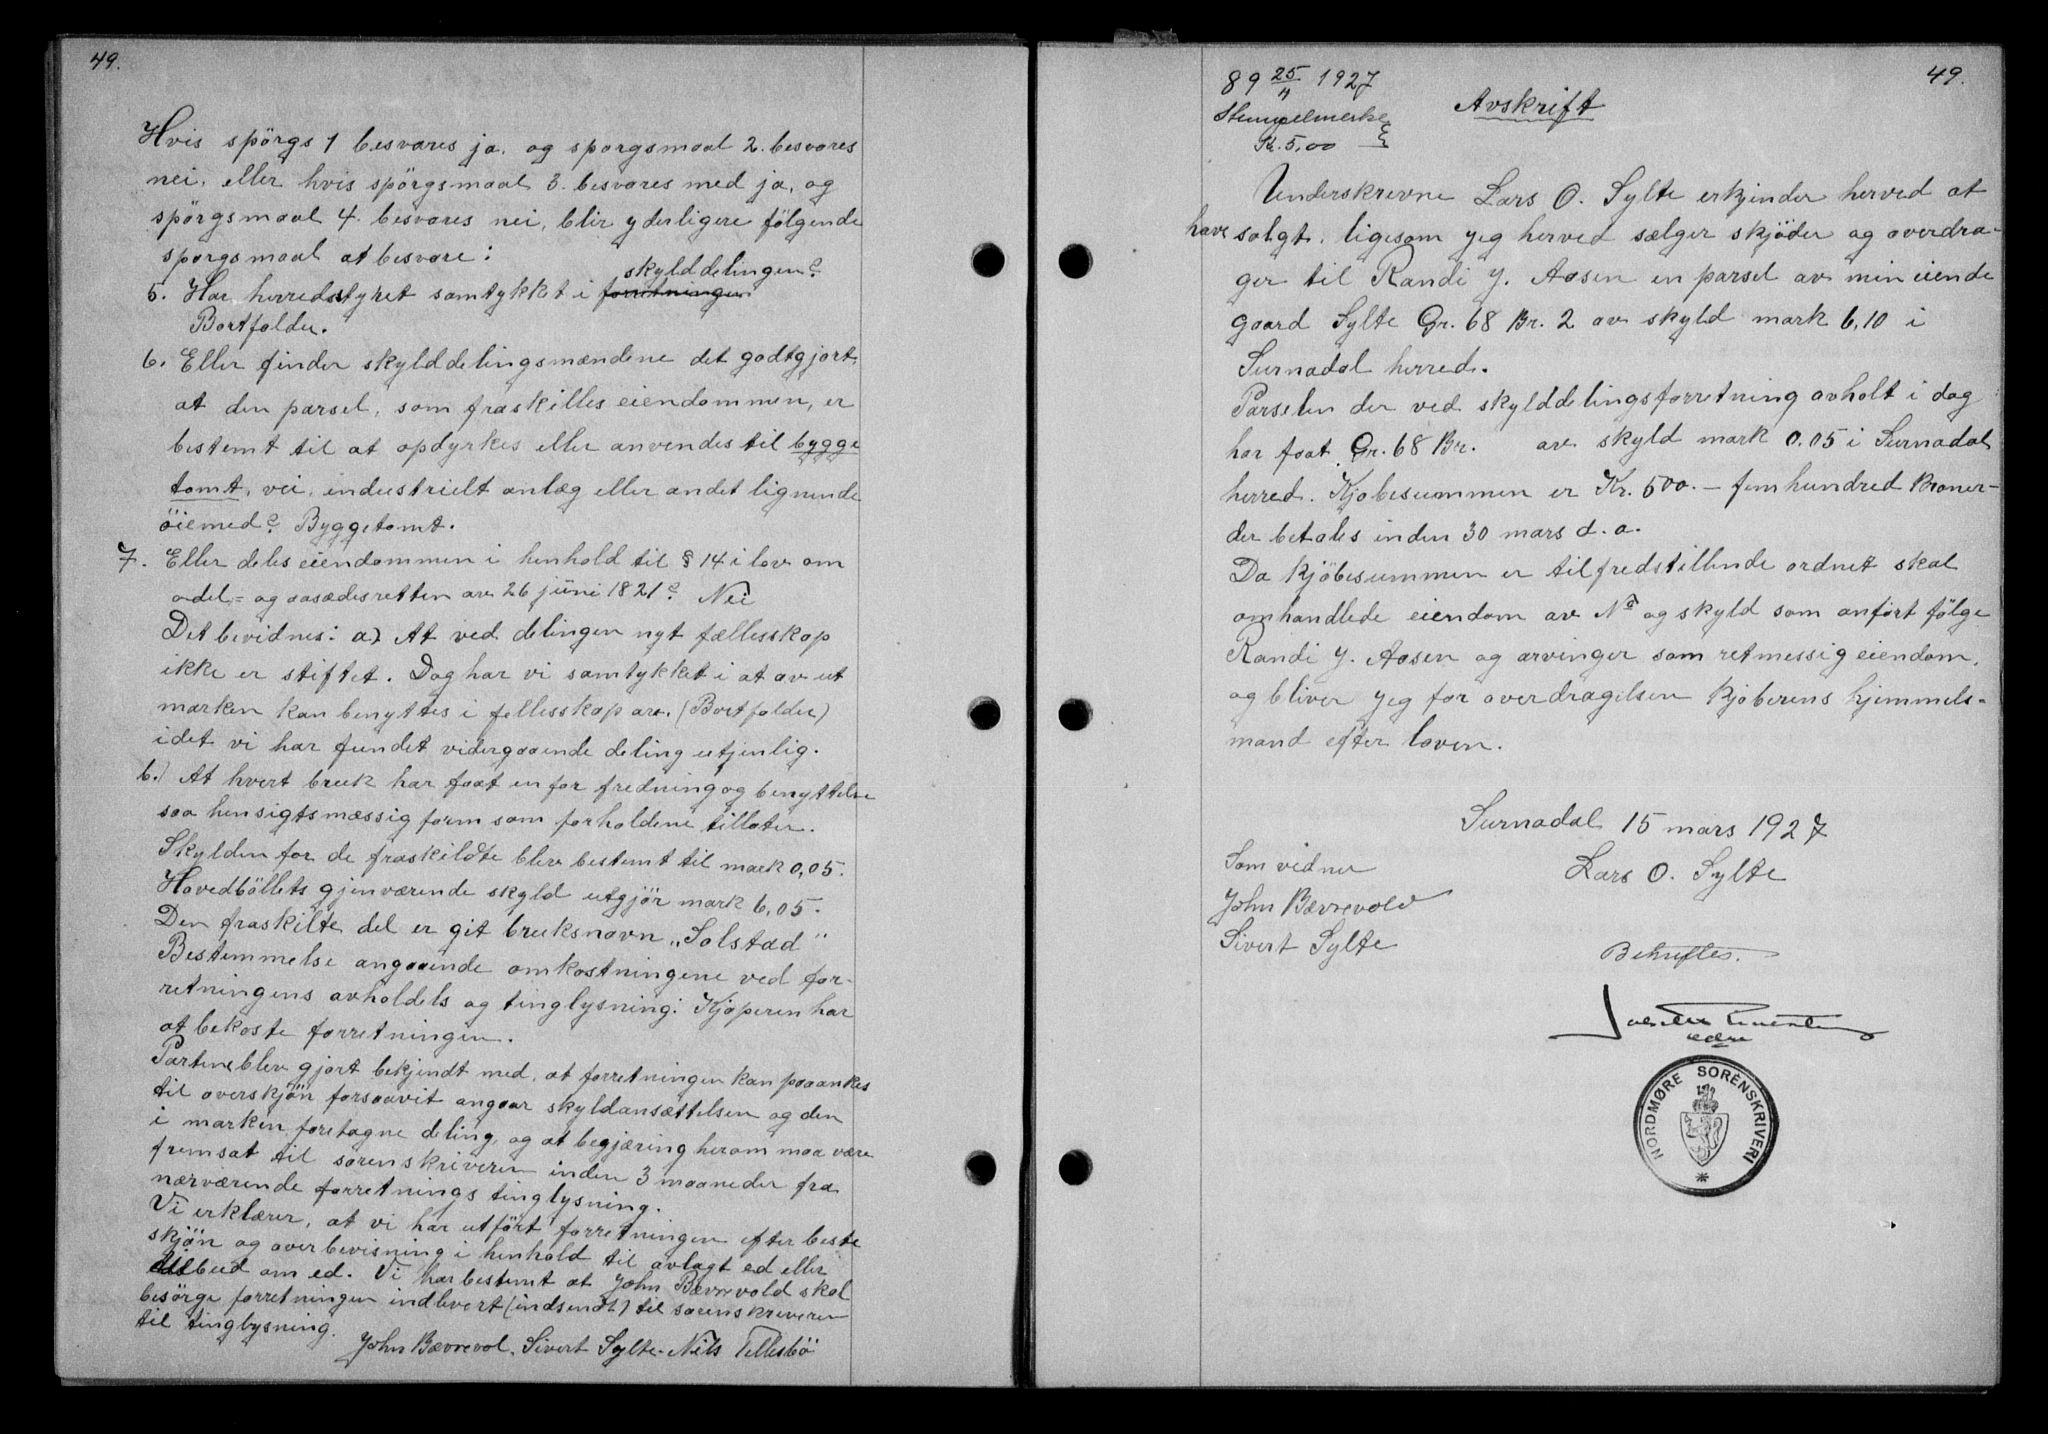 49.
Hvis spörgs 1 besvares ja. og sporgsmaal 2. besvares
nei, eller hvis spörgsmaal 3. besvares med ja, og
spörgsmaal 4. besvares nei, blir yderligere fölgende
sporgsmaal at besvare:
skylddelingen?
5. Har herredstyret samtykket i forretningen
Bortfalder.
6. Eller finder skylddelingsmændene det godtgjort
at den parsel, som fraskilles eiendommen, er
bestemt til at opdyrkes eller anvendes til bygge
tomt, vei, industrielt anlæg eller andet lignende
öiemed? Byggetomt.
7. Eller deles eiendommen i henhold til § 14 i lov om
odel- og aasædesretten av 26 juni 1821? Nei
Det bevidnes: a) At ved delingen nyt fællesskap
ikke er stiftet. Dog har vi samtykket i at av ut
marken kan benyttes i fellesskap av. (Bortfalder)
idet vi har fundet vidergaaende deling utjenlig.
b.) At hvert bruk har faat en for fredning og benyttelse
saa hensigtsmæssig form som forholdene tillater.
Skylden for de fraskildte blev bestemt til mark 0,05.
Hovedböllets gjenværende skyld utgjör mark 6,05.
Den fraskilte del er git bruksnavn "Solstad"
Bestemmelse angaaende omkostningene ved for-
retningens avholdels og tinglysning: Kjøperen har
at bekoste forretningen.
Partene blev gjort bekjendt med, at forretningen kan paaankes
til overskjön forsaavit angaar skyldansættelsen og den
i marken foretagne deling, og at begjæring herom maa være
fremsat til sorenskriveren inden 3 maaneder fra
nærværende forretnings tinglysning.
Vi erklærer, at vi har utfört forretningen efter beste
skjön og overbevisning i henhold til avlagt ed eller
tilbud om ed. Vi har bestemt at John Bævrevold skal
besörge forretningen indlevert (indsendt) til sorenskriveren
til tinglysning.
John Bævrevol. Sivert Sylte. Nils Tellesbö
49.
89 25/4 1927
Avskrift
Stempelmerke
Kr. 5,00
Underskrevne Lars O. Sylte erkjender herved at
have solgt, ligesom jeg herved sælger skjöder og overdra-
ger til Randi J. Aasen en parsel av min eiende
gaard Sylte Gr. 68 Br. 2 av skyld mark 6,10 i
Surnadal herred.
Parselen der ved skylddelingsforretning avholt i dag
har faat Gr. 68 Br. av skyld mark 0.05 i Surnadal
herred. Kjobesummen er Kr. 500.- femhundred kroner-
der betales inden 30 mars d. a.
Da kjöbesummen er tilfredstillende ordnet skal
omhandlede eiendom av No og skyld som anfört fölge
Randi J. Aasen og arvinger som retmessig eiendom,
og bliver jeg for overdragelsen kjoberens hjemmels-
mand efter loven.
Surnadal 15 mars 1927
Som vidner
Lars O. Sylte
John Bævrevold
Sivert Sylte
Bekreftes.
NORDMØRE SORENSKRIVERI